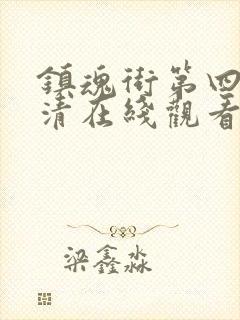 鎮魂街第四
清在綫觀看
梁鑫淼